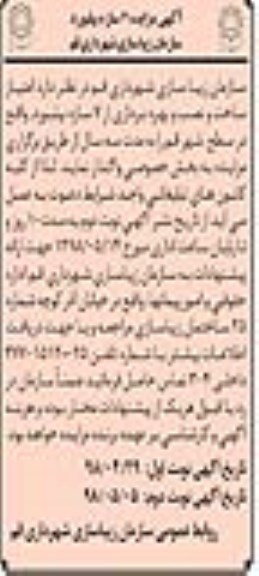 آگهی مزایده ۲ سازه بیلبورد
سازمان زیباسازی شهرداری قم
سازمان زیبا سازی شهرداری قم در نظر دارد امتیاز
ساخت و نصب و بهره برداری از ۲ سازه بیلبورد واقع
در سطح شهر قم را به مدت سه سال از طریق برگزاری
مزایده به بخش خصوصی واگذار نماید. لذا از کلیه
کانون های تبلیغاتی واجد شرایط دعوت به عمل
می آید از تاریخ نشر آگهی نوبت دوم به مدت ۱۰ روز و
تا پایان ساعت اداری مورخ ۱۳۹۸/۰۵/۱۴ جهت ارائه
پیشنهادات به سازمان زیباسازی شهرداری قم اداره
حقوقی و امور پیمانها واقع در خیابان آذر کوچه شماره
۲۵ ساختمان زیباسازی مراجعه و یا جهت دریافت
اطلاعات بیشتر با شماره تلفن
داخلی ۳۰۴ تماس حاصل فرمایند. ضمناً سازمان در
رد یا قبول هریک از پیشنهادات مختار بوده و هزینه
آگهی و کارشناسی بر عهده برنده مزایده خواهد بود.
تاریخ آگهی نوبت اول: ۹۸/۰۴/۲۹
تاریخ آگهی نوبت دوم: ۹۸/۰۵/۰۵
روابط عمومی سازمان زیباسازی شهرداری قم